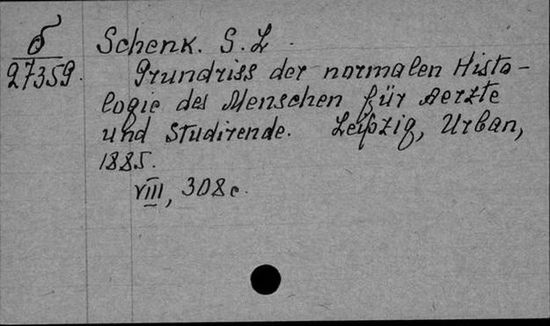 б
27359.
Schenk. S. L.
Grundriss der normalen Histo-
logie des Menschen für Aerzte
und Studirende. Leipzig, Urban,
1885.
VIII, 308 c.